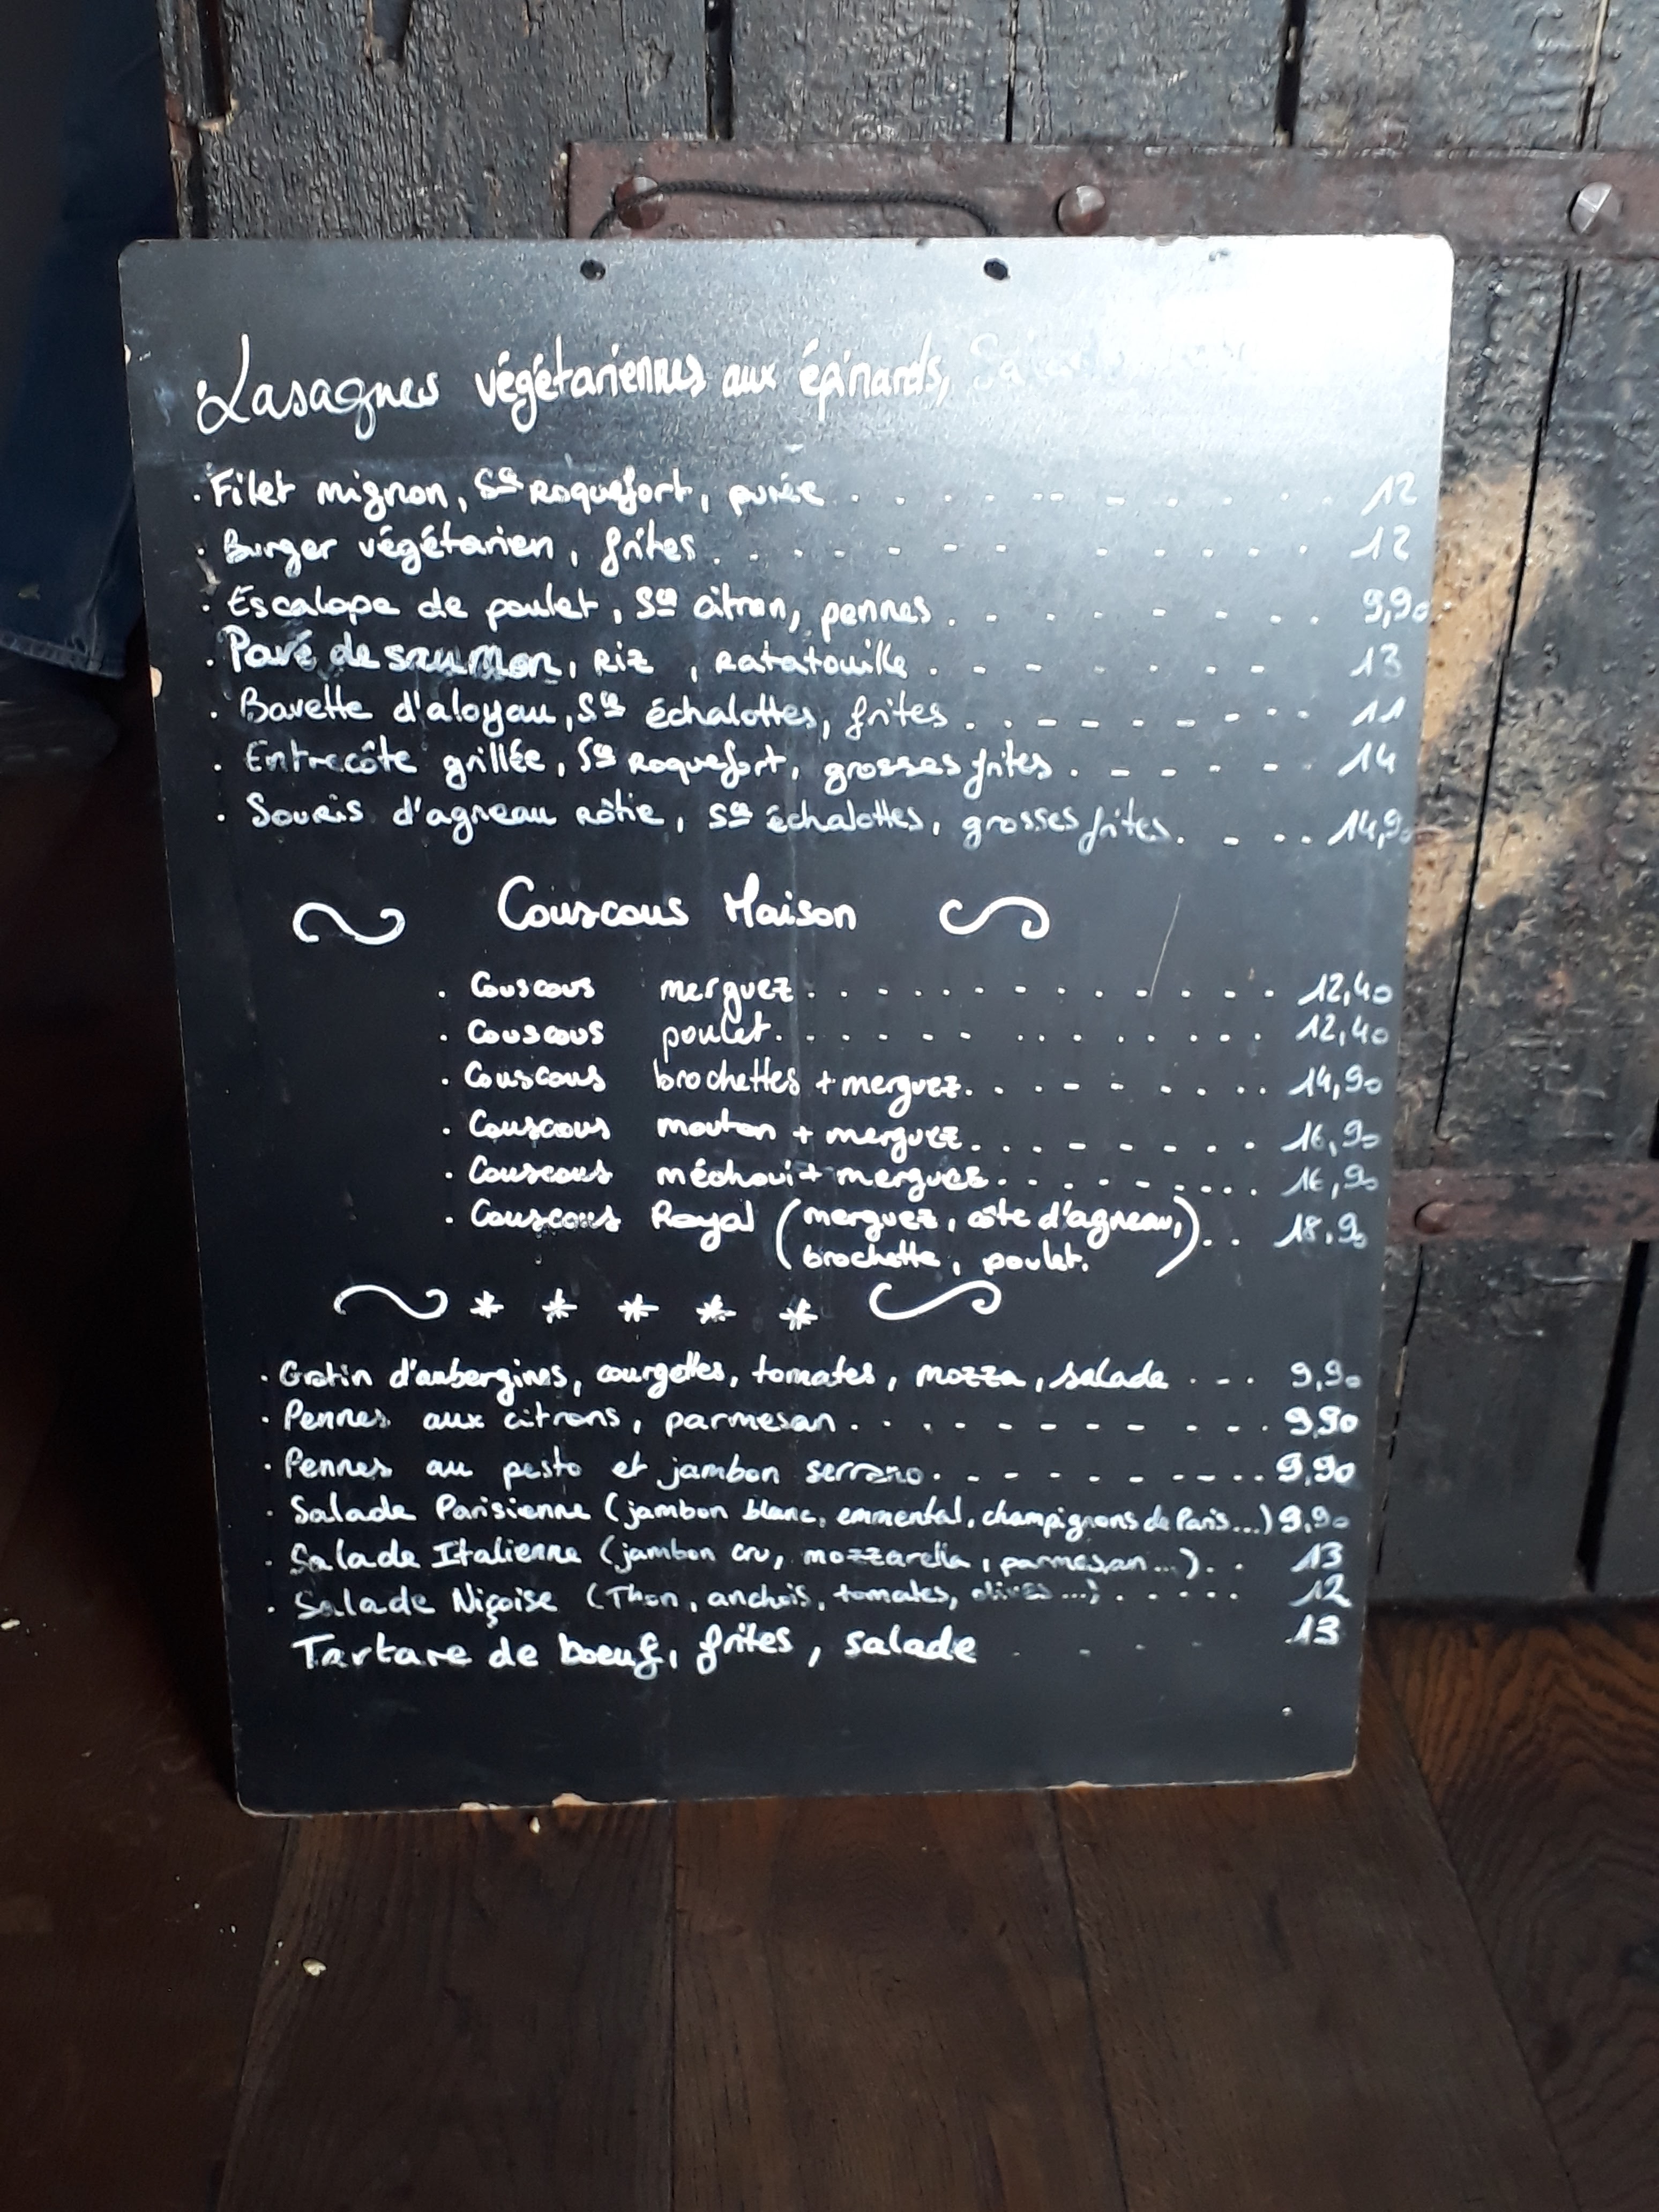 Lasagnes végétariennes aux épinards,
. Filet mignon, Sce Roquefort, purée . . . . . . . . . . . 12
. Burger végétarien, frites . . . . . . . . . . . . 12
. Escalope de poulet, Sce citron, pennes . . . . . . . . 9,90
. Pavé de saumon, Riz , Ratatouille . . . . . . . 13
. Bavette d'aloyau, Sce échalottes, frites . . . . . . . . . 11
. Entrecôte grillée, Sce Roquefort, grosses frites . . . . . . 14
. Souris d'agneau rôtie, Sce échalottes, grosses frites . . . . 14,90
Couscous Maison
. Couscous merguez . . . . . . . . . . . . . 12,40
. Couscous poulet . . . . . . . . . . . . . 12,40
. Couscous brochettes + merguez . . . . . . . . . 14,90
. Couscous mouton + merguez . . . . . . . . 16,90
. Couscous méchoui + merguez . . . . . . . . . . 16,90
. Couscous Royal (merguez, côte d'agneau, brochette, poulet.) . . 18,90
* * * * *
. Gratin d'aubergines, courgettes, tomates, mozza, salade . . . 9,90
. Pennes aux citrons, parmesan . . . . . . . . . . . 9,90
. Pennes au pesto et jambon serrano . . . . . . . . . . 9,90
. Salade Parisienne (jambon blanc, emmental, champignons de Paris...) 9,90
. Salade Italienne (jambon cru, mozzarella, parmesan...) . . 13
. Salade Niçoise (Thon, anchois, tomates, olives ...) . . . . . . 12
Tartare de boeuf, frites, salade . . . . 13